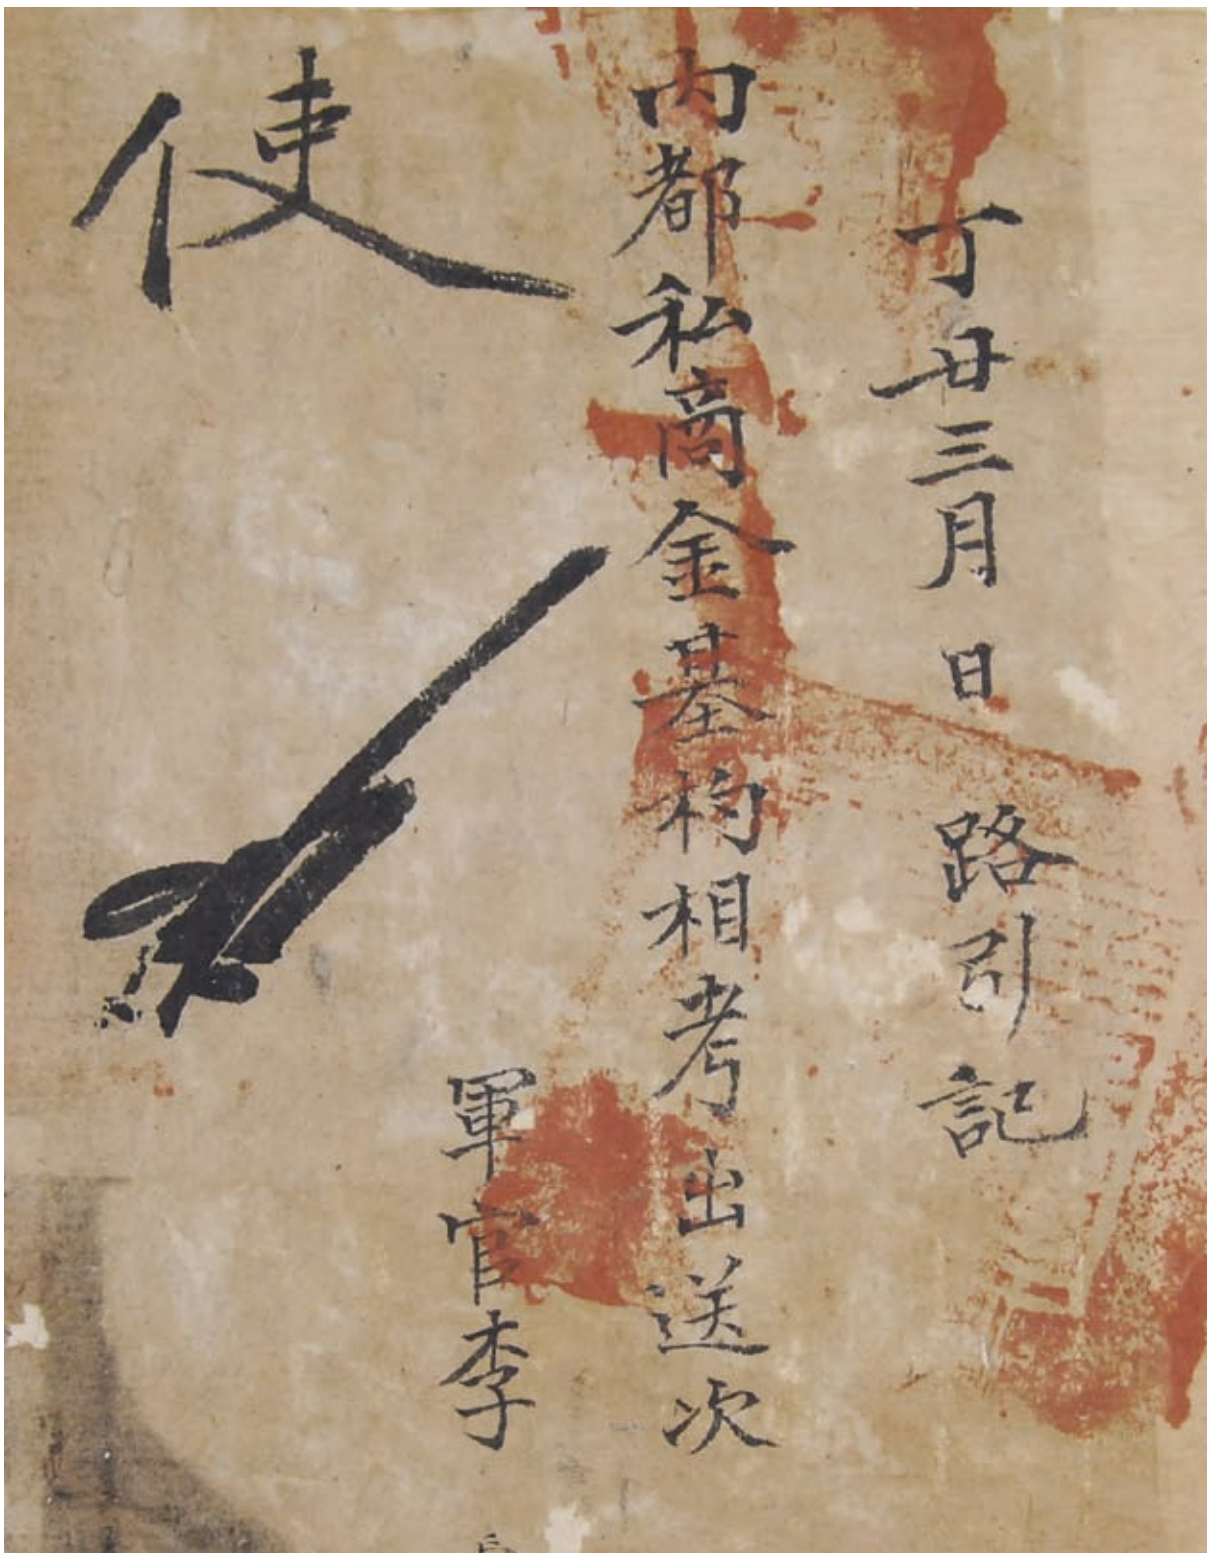 丁丑三月 日 路引記
內都私商金基杓相考出送次
軍官李
使